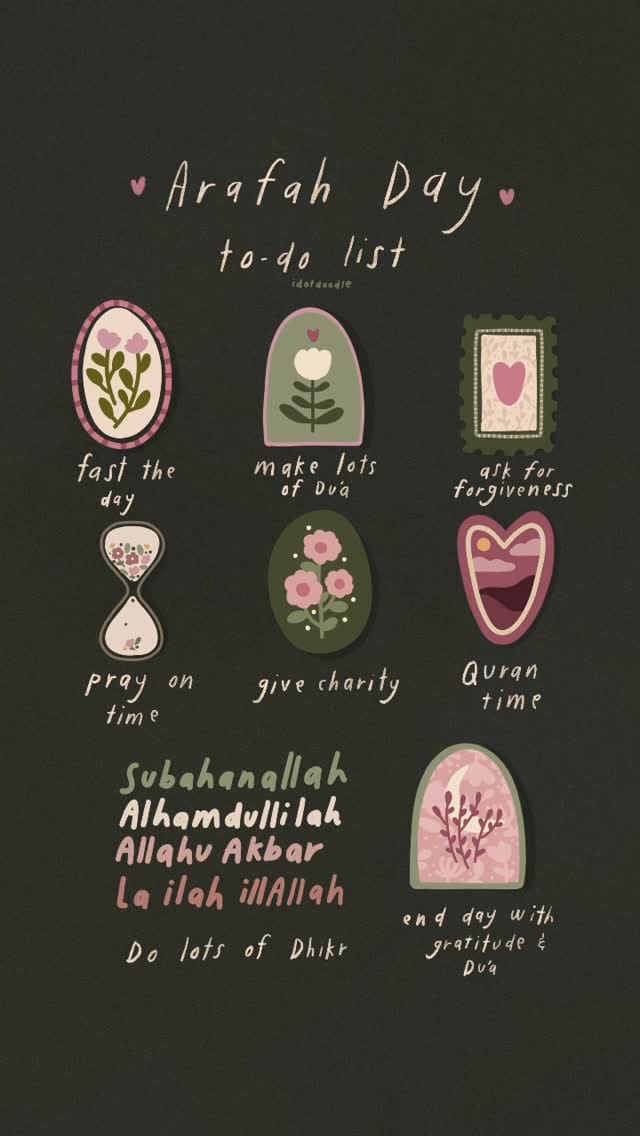 Arafah Day
to-do list
idofdoodle
fast the
day
make lots
of Du'a
ask for
forgiveness
pray on
time
give charity
Quran
time
Subahanallah
Alhamdullilah
Allahu Akbar
La ilah illAllah
Do lots of Dhikr
end day with
gratitude &
Du'a